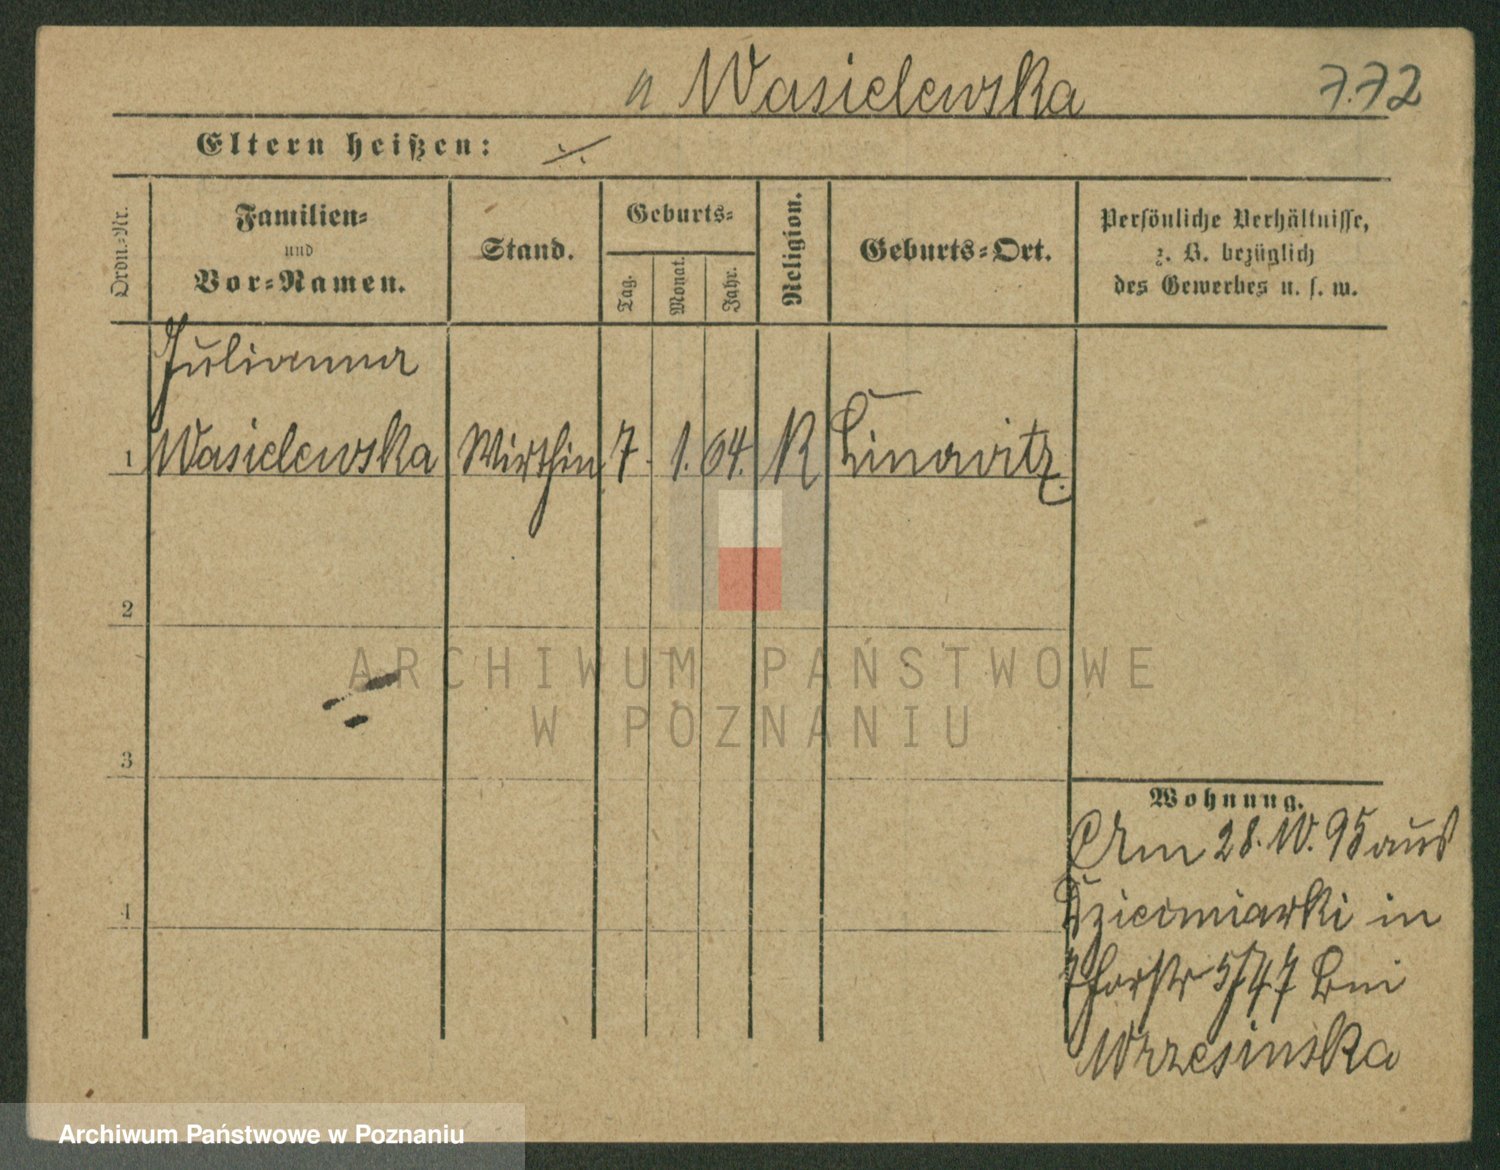 Wasielewska 7.72
Eltern heißen: ·/.
Ordn.-Nr.
Familien-
und
Vor-Namen.
Stand.
Geburts-
Tag.
Monat.
Jahr.
Religion.
Geburts-Ort.
Persönliche Verhältnisse,
z. B. bezüglich
des Gewerbes u. s. w.
Julianna
1 Wasielewska Wirthin 7. 1. 64. K
2
3
4
Wohnung.
Am 28. 10. 95 aus
in
bei
Wrzesinska
ARCHIWUM PAŃSTWOWE
W POZNANIU
Archiwum Państwowe w Poznaniu